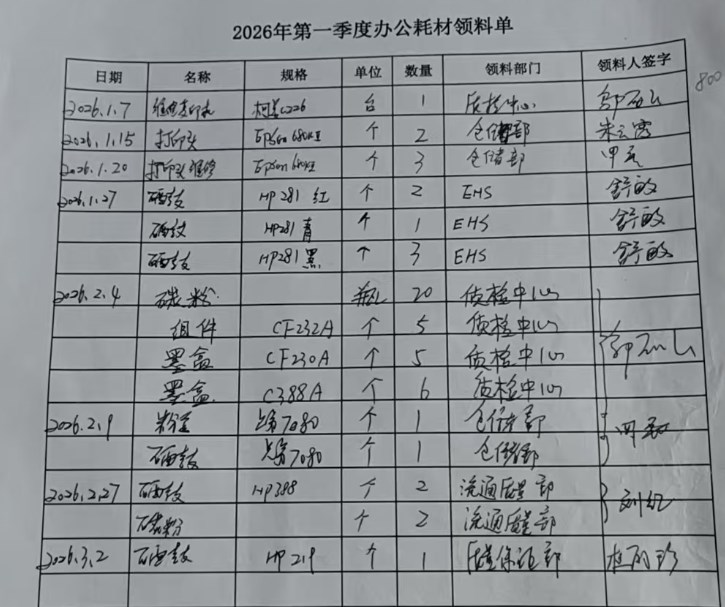 2026年第一季度办公耗材领料单
日期 名称 规格 单位 数量 领料部门 领料人签字
800
2026.1.7 柯美C226 台 1 质检中心
2026.1.15 打印头 Epson 680KII 个 2 仓储部 朱云霞
2026.1.20 打印头维修 Epson 680KII 个 3 仓储部
2026.1.27 硒鼓 HP281 红 个 2 EHS 舒敏
硒鼓 HP281 青 个 1 EHS 舒敏
硒鼓 HP281 黑 个 3 EHS 舒敏
2026.2.4 碳粉 瓶 20 质检中心
组件 CF232A 个 5 质检中心
墨盒 CF230A 个 5 质检中心
墨盒 C388A 个 6 质检中心
2026.2.9 粉盒 7080 个 1 仓储部
硒鼓 7080 个 1 仓储部
2026.2.27 硒鼓 HP388 个 2 流通质量部
碳粉 个 2 流通质量部
2026.3.2 硒鼓 HP219 个 1 质量保证部